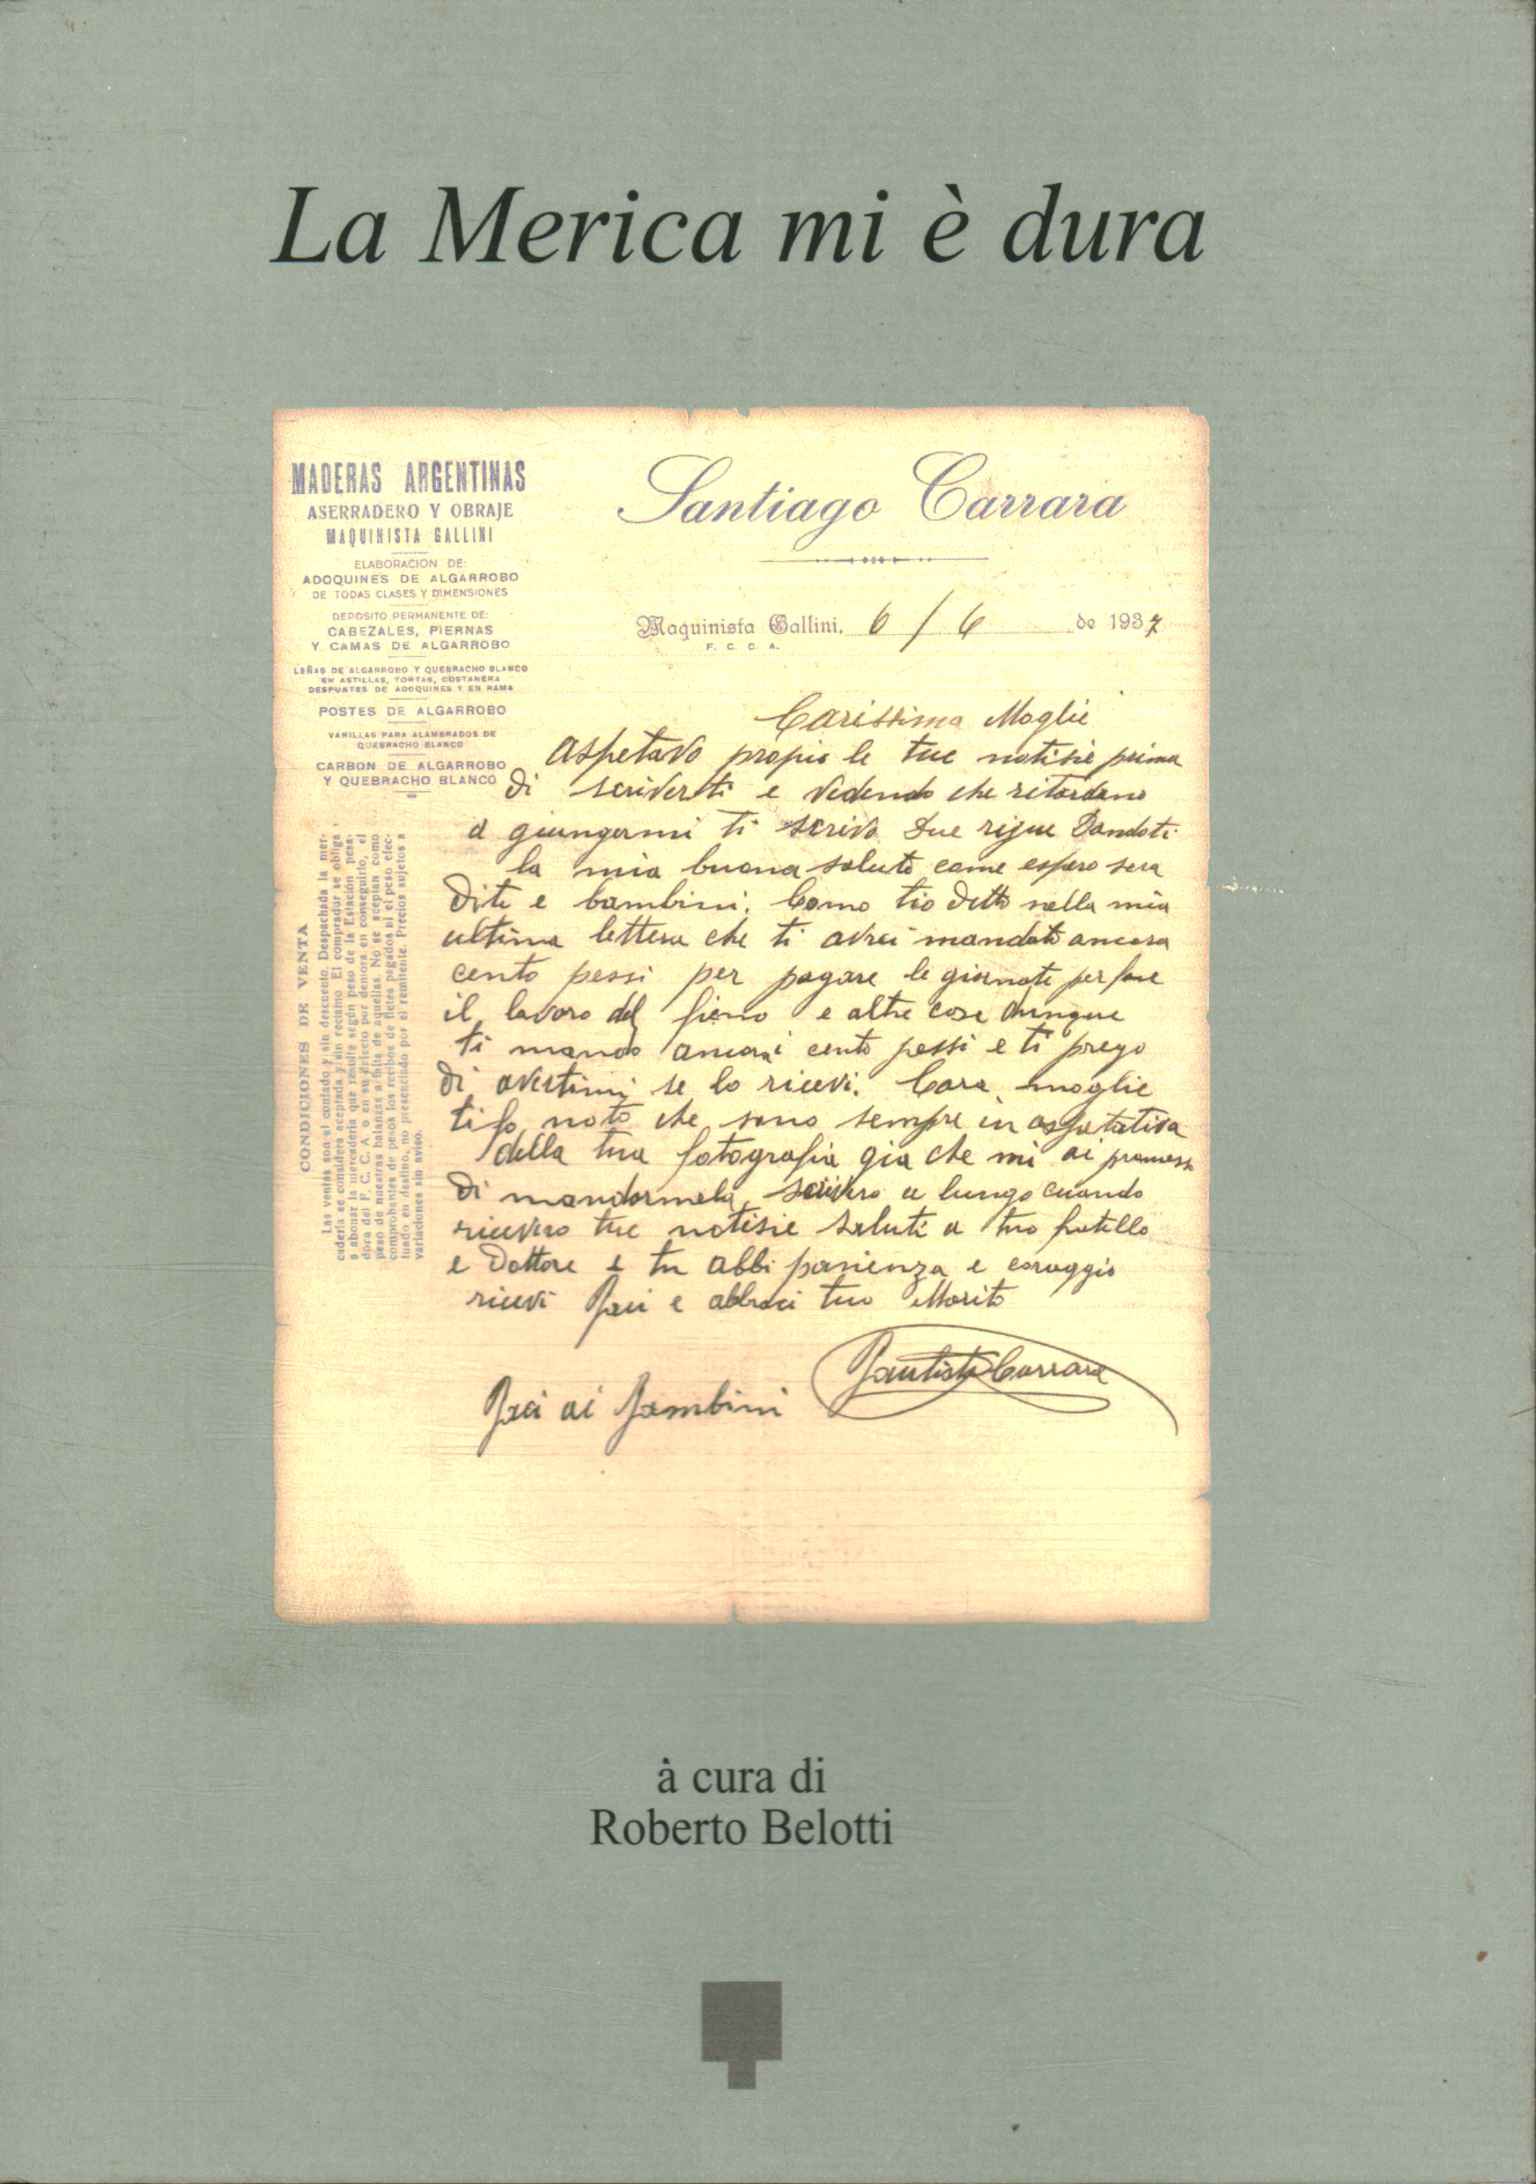 La Merica mi è dura
MADERAS ARGENTINAS
ASERRADERO Y OBRAJE
MAQUINISTA GALLINI
ELABORACION DE:
ADOQUINES DE ALGARROBO
DE TODAS CLASES Y DIMENSIONES
DEPOSITO PERMANENTE DE:
CABEZALES, PIERNAS
Y CAMAS DE ALGARROBO
LEÑAS DE ALGARROBO Y QUEBRACHO BLANCO
EN ASTILLAS, TORTAS, COSTANERA
DESPUNTES DE ADOQUINES Y EN RAMA
POSTES DE ALGARROBO
VARILLAS PARA ALAMBRADOS DE
QUEBRACHO BLANCO
CARBON DE ALGARROBO
Y QUEBRACHO BLANCO
CONDICIONES DE VENTA
Las ventas son al contado y sin descuento. Despachada la mer-
cadería se considera aceptada y sin reclamo. El comprador se obliga
a abonar la mercadería que resulte según peso de la Estación pesa-
dora del F. C. C. A. o en su defecto por demora en conseguirlo, el
peso de nuestras balanzas a falta de aquellas. No se aceptan como
comprobantes de pesos los recibos de fletes pagados ni el peso efec-
tuado en destino, no presenciado por el remitente. Precios sujetos a
variaciones sin aviso.
Santiago Carrara
Maquinista Gallini, 6 / 6 de 1937
F. C. C. A.
Carissima Moglie
Aspetavo propio le tue notisie prima
di scriverti e vedendo che ritardano
a giungermi ti scrivo due rigue Dandoti
la mia buona salute come espero sera
Dite e bambini. Como tio detto nella mia
ultima lettera che ti avrei mandato ancora
cento pessi per pagare le giornate per fare
il lavoro del fieno e altre cose Dunque
ti mando ancora cento pessi e ti prego
Di avertimi se lo ricevi. Cara moglie
ti fo noto che sono sempre in aspetativa
della tua fotografia gia che mi ai promesso
Di mandarmela, scrivero a lungo cuando
ricevero tue notisie saluti a tuo fratello
e Dottore e tu abbi pasienza e coraggio
ricevi Baci e abbraci tuo Marito
Bautista Carrara
Baci ai Bambini
à cura di
Roberto Belotti